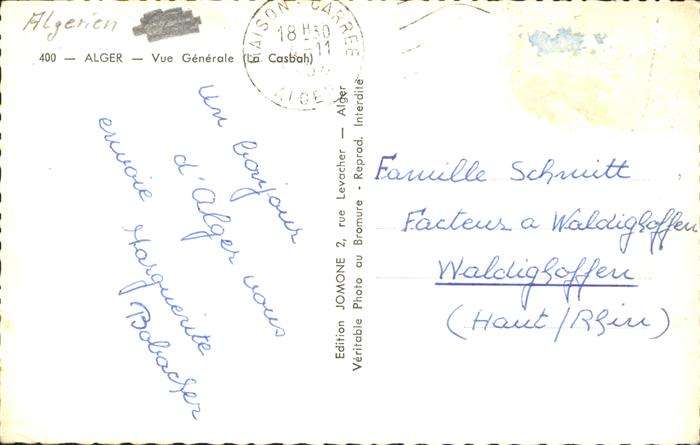 Algerien
400 — ALGER — Vue Générale (La Casbah)
MAISON-CARREE
18 H 30
-11
ALGER
un bonjour
d'Alger vous
envoie Marguerite
Bobacher
Edition JOMONE 2, rue Levacher — Alger
Véritable Photo au Bromure - Reprod. Interdite
Famille Schmitt
Facteur a Waldighoffen
Waldighoffen
(Haut/Rhin)